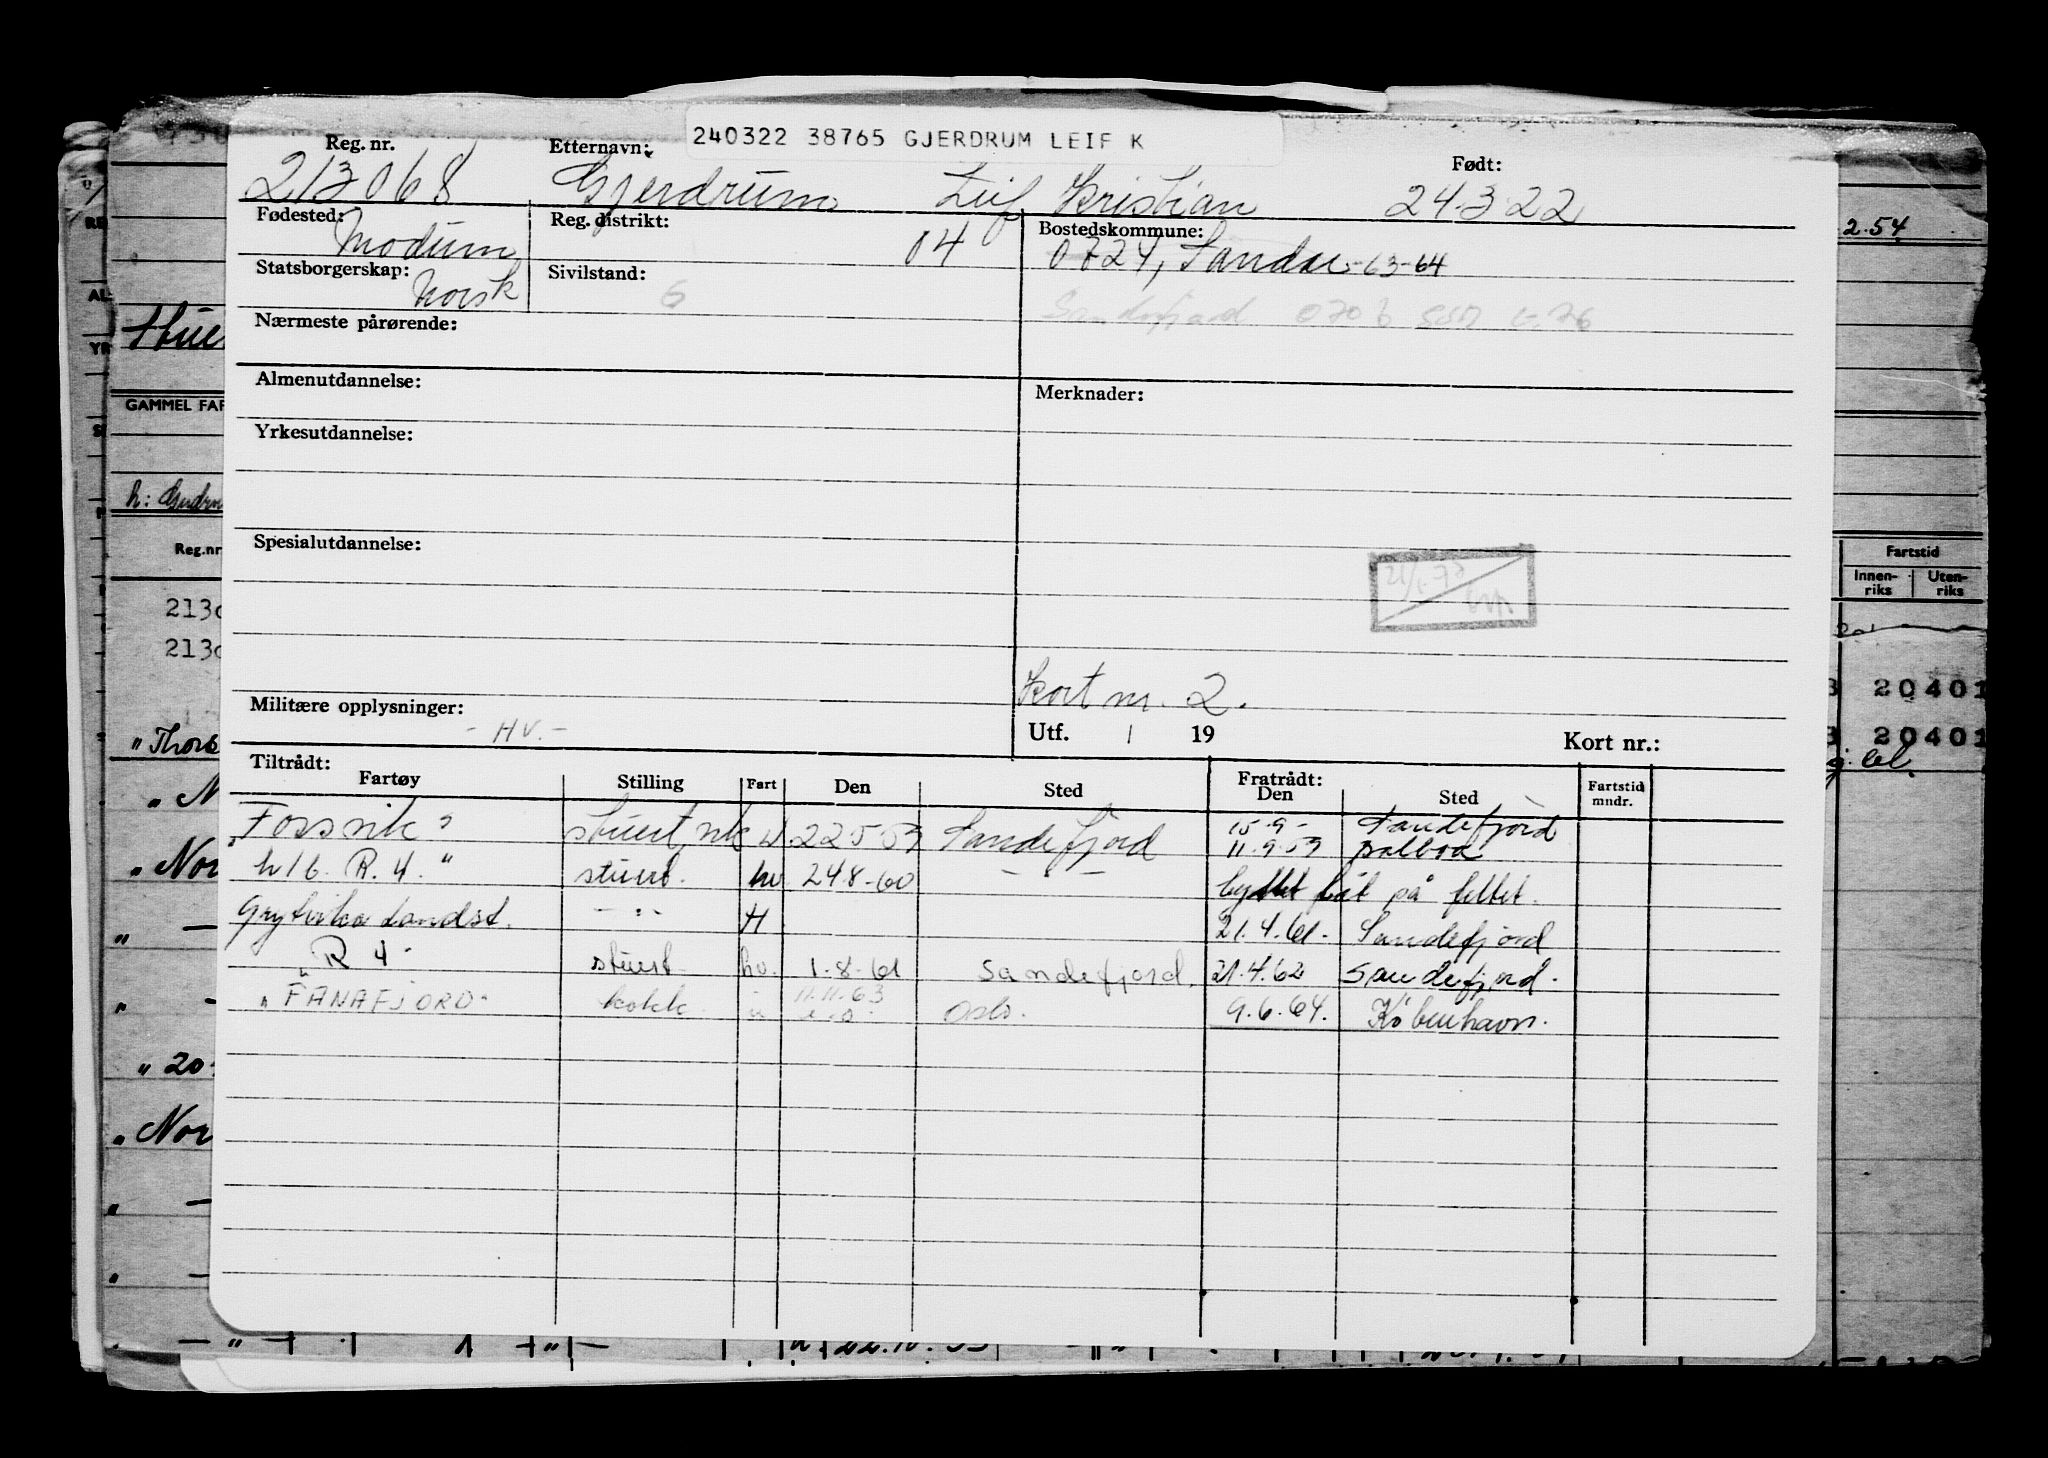 240322 38765 GJERDRUM LEIF K
Reg. nr. Etternavn: Født:
213068 Gjerdrum Leif Kristian 24.3.22
Fødested: Modum Reg. distrikt: 04 Bostedskommune: 0724, Sandar -63-64
Statsborgerskap: Norsk Sivilstand: G
Sandefjord 0706
Nærmeste pårørende:
Almenutdannelse: Merknader:
Yrkesutdannelse:
Spesialutdannelse:
Kort nr. 2.
Militære opplysninger: - HV. - Utf. / 19 Kort nr.:
Tiltrådt: Fratrådt:
Fartøy Stilling Fart Den Sted Den Sted Fartstid mndr.
"Forsvik" stuert 22.5.59 Sandefjord 15.9- Sandefjord
11.9.59 Balboa
hlb. R. 4." stuert. hv. 24.8-60 - " - byttet båt på feltet.
Grytvika Landst. - " - H 21.4.61. Sandefjord
"R 4" stuert hv. 1-8-61 Sandefjord. 21.4.62 Sandefjord.
"FANAFJORD" kokk u 11.11.63 Oslo. 9.6.64. København.
GAMMEL FAR
Reg.nr
Fartstid
Innen-riks Uten-riks
213
213
20401
20401
2.54
"Nor
"20
"Nor